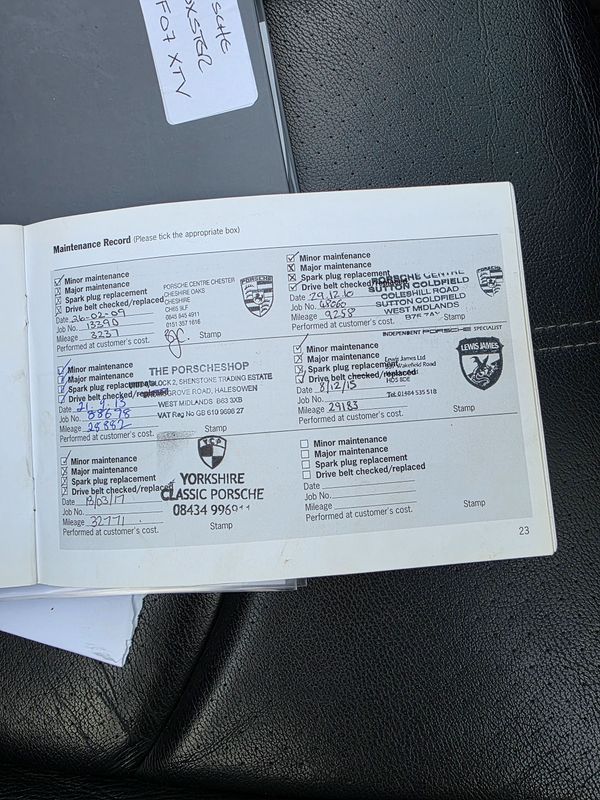 SCHE
OXSTER
F07 XTV
Maintenance Record (Please tick the appropriate box)
Minor maintenance
Major maintenance
Spark plug replacement
Drive belt checked/replaced
Date 26-02-09
Job No. 13390
Mileage 3237
Performed at customer's cost.
PORSCHE CENTRE CHESTER
CHESHIRE OAKS
CHESHIRE
CH65 9LF
0845 845 4911
0151 357 1616
Stamp
PORSCHE
Minor maintenance
Major maintenance
Spark plug replacement
Drive belt checked/replaced
Date 29.12.10
Job No. 68060
Mileage 9258
Performed at customer's cost.
PORSCHE CENTRE
SUTTON COLDFIELD
COLESHILL ROAD
SUTTON COLDFIELD
WEST MIDLANDS
Stamp
Minor maintenance
Major maintenance
Spark plug replacement
Drive belt checked/replaced
Date 21.9.13
Job No. 88678
Mileage 28882
Performed at customer's cost.
THE PORSCHESHOP
BLOCK 2, SHENSTONE TRADING ESTATE
GROVE ROAD, HALESOWEN
WEST MIDLANDS B63 3XB
VAT Reg No GB 610 9698 27
Stamp
Minor maintenance
Major maintenance
Spark plug replacement
Drive belt checked/replaced
Date 8/12/15
Job No.
Mileage 29183
Performed at customer's cost.
INDEPENDENT PORSCHE SPECIALIST
Lewis James Ltd
Wakefield Road
HD5 8DE
Tel: 01484 535 518
LEWIS JAMES
Stamp
Minor maintenance
Major maintenance
Spark plug replacement
Drive belt checked/replaced
Date 13/03/17
Job No.
Mileage 32771
Performed at customer's cost.
Y.C.P
YORKSHIRE
CLASSIC PORSCHE
08434 9969
Stamp
Minor maintenance
Major maintenance
Spark plug replacement
Drive belt checked/replaced
Date
Job No.
Mileage
Performed at customer's cost.
Stamp
23